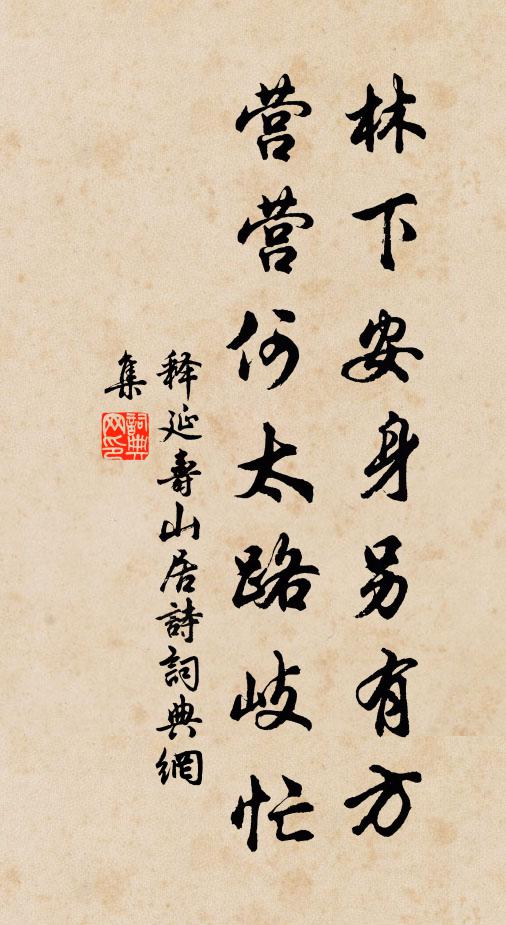 林下安身另有方
营营何太路岐忙
释延壽山居詩詞典網
集
詞典
网印